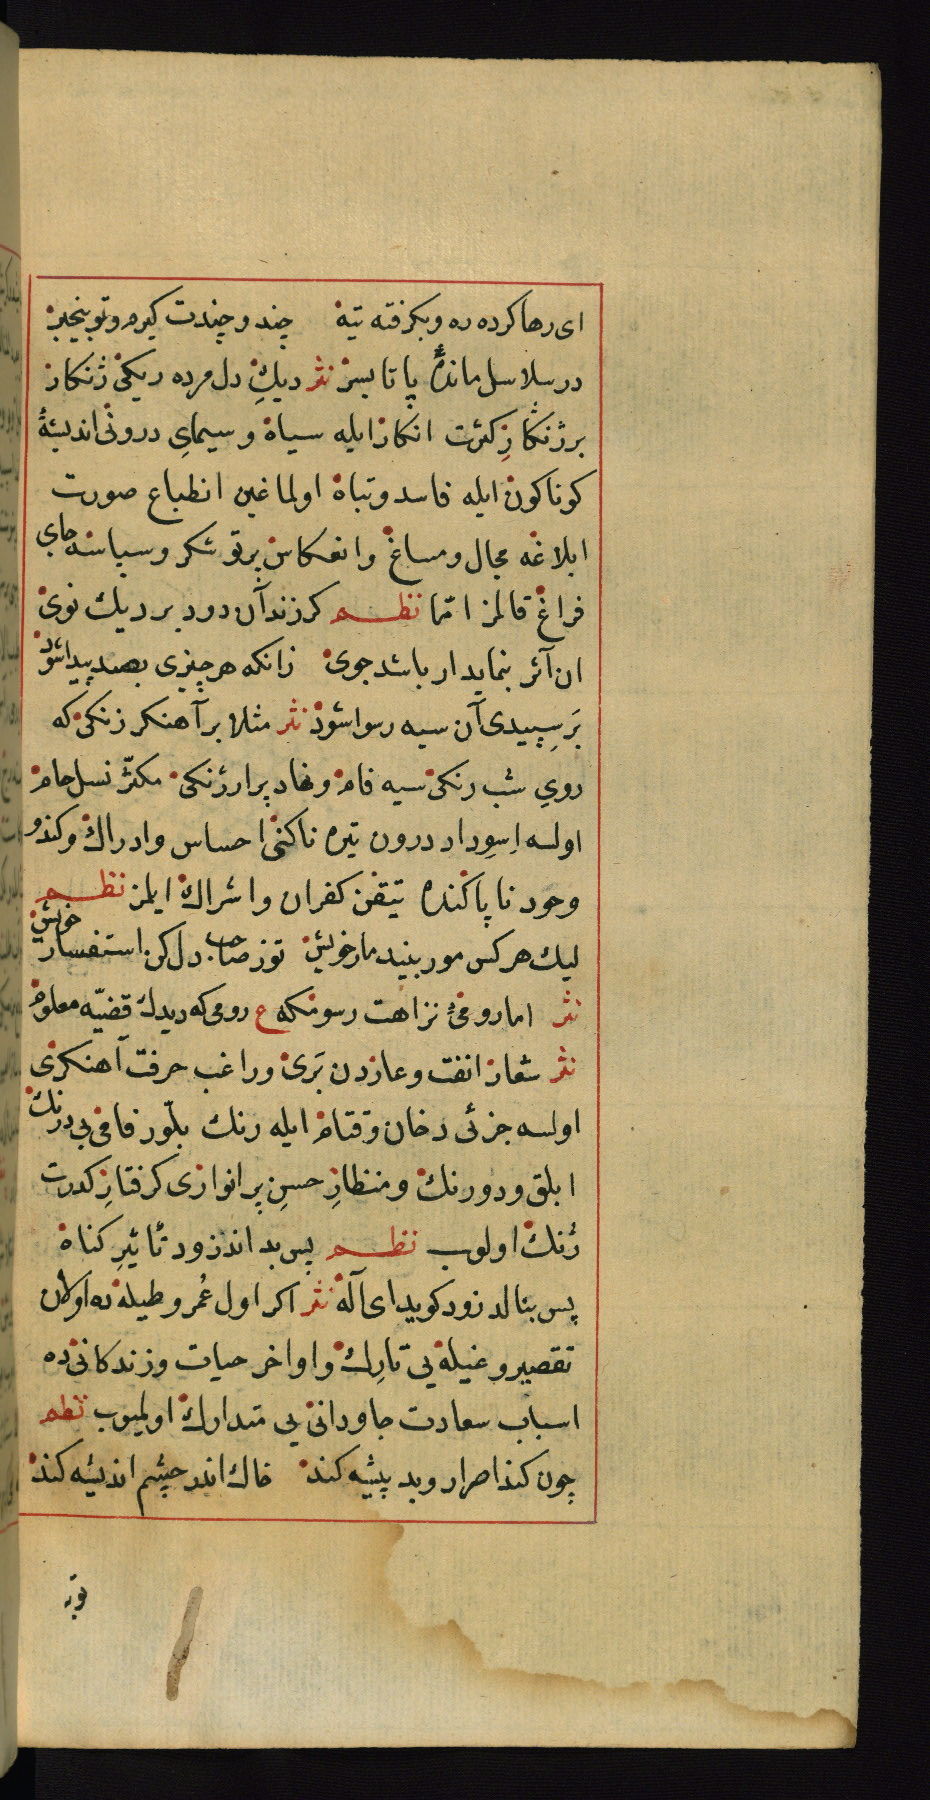 ای رها کرده ره و بکرفته تیه چند و چندت کیرم و تو بیخبر
در سلاسل ماندهٔ پا تا بسر نثر دیكِ دل مرده ریکی ژنکار
بر ژنکارِ کثرت انکار ایله سیاه و سیمایِ درونی اندیشهٔ
کوناکون ایله فاسد و تباه اولماغین انطباع صورت
ابلاغه مجال و مساغ و انعکاس پرتو شکر و سپاسنه جای
فراغ قالمز امّا نظم کر زند آن دود بر دیك نوی
ان آثر بنماید ار باشد جوی زانکه هر چیزی بضد پیدا شود
بَر سِپیدی آن سیه رسوا شود نثر مثلا بر آهنکر زنکی که
روی شب رنکی سیه فام و نهاد پر ارژنکی مکثّر نسل حام
اولسه اِسوِداد درون تیره ناکنی احساس و ادراك و کند و
وجود ناپاکنده تیقن کفران و اشراك ایلمز نظم
لیك هر کس مور بیند مار خویش تو ز صاحب دل کن استفسار خویش
نثر اما رومیٔ نزاهت رسومکه ع رومی که دیدك قضیّه معلوم
نثر شعار انفت و عاردن بَری و راغب حرفت آهنکری
اولسه جزئی دخان و قتام ایله رنك بلّور فامی بی درنك
ابلق و دورنك و منظارِ حسنِ پر انواری کرفتارِ کدرت
ژنك اولوب نظم پس بداند زود تأثیرِ کناه
پس بنالد زود کوید ای آله نثر اکر اول عُمر و طیله ده اولان
تقصیر و غیله یی تارك و اواخر حیات و زندکانی ده
اسباب سعادت جاودانی یی متدارك اولمیوب نظم
چون کند اصرار و بد پیشه کند خاك اندر چشم اندیشه کند
توبه